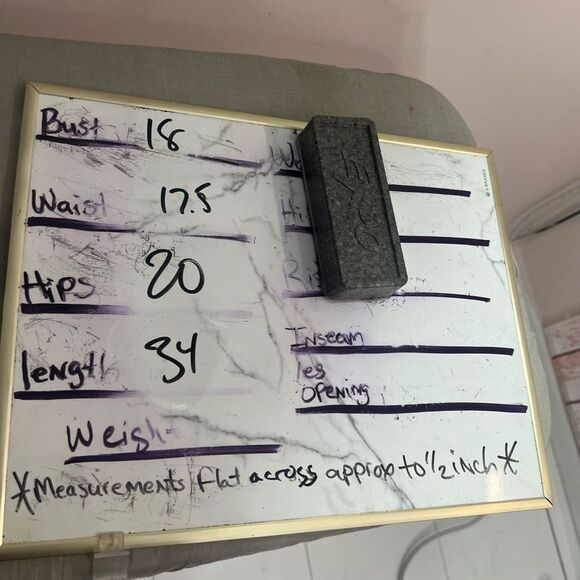 Bust 18
Waist 17.5
Hips 20
length 34
Weight
Inseam
leg
Opening
*Measurements flat across approx to 1/2 inch*
U BRANDS